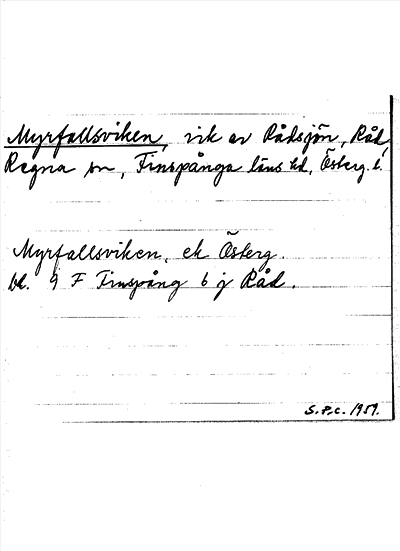 Myrfallsviken, vik av Rådsjön, Råd,
Regna sn, Finspånga läns hd, Österg. l.
Myrfallsviken, ek Österg.
bl. 9 F Finspång 6 j Råd.
S.P.C. 1959.